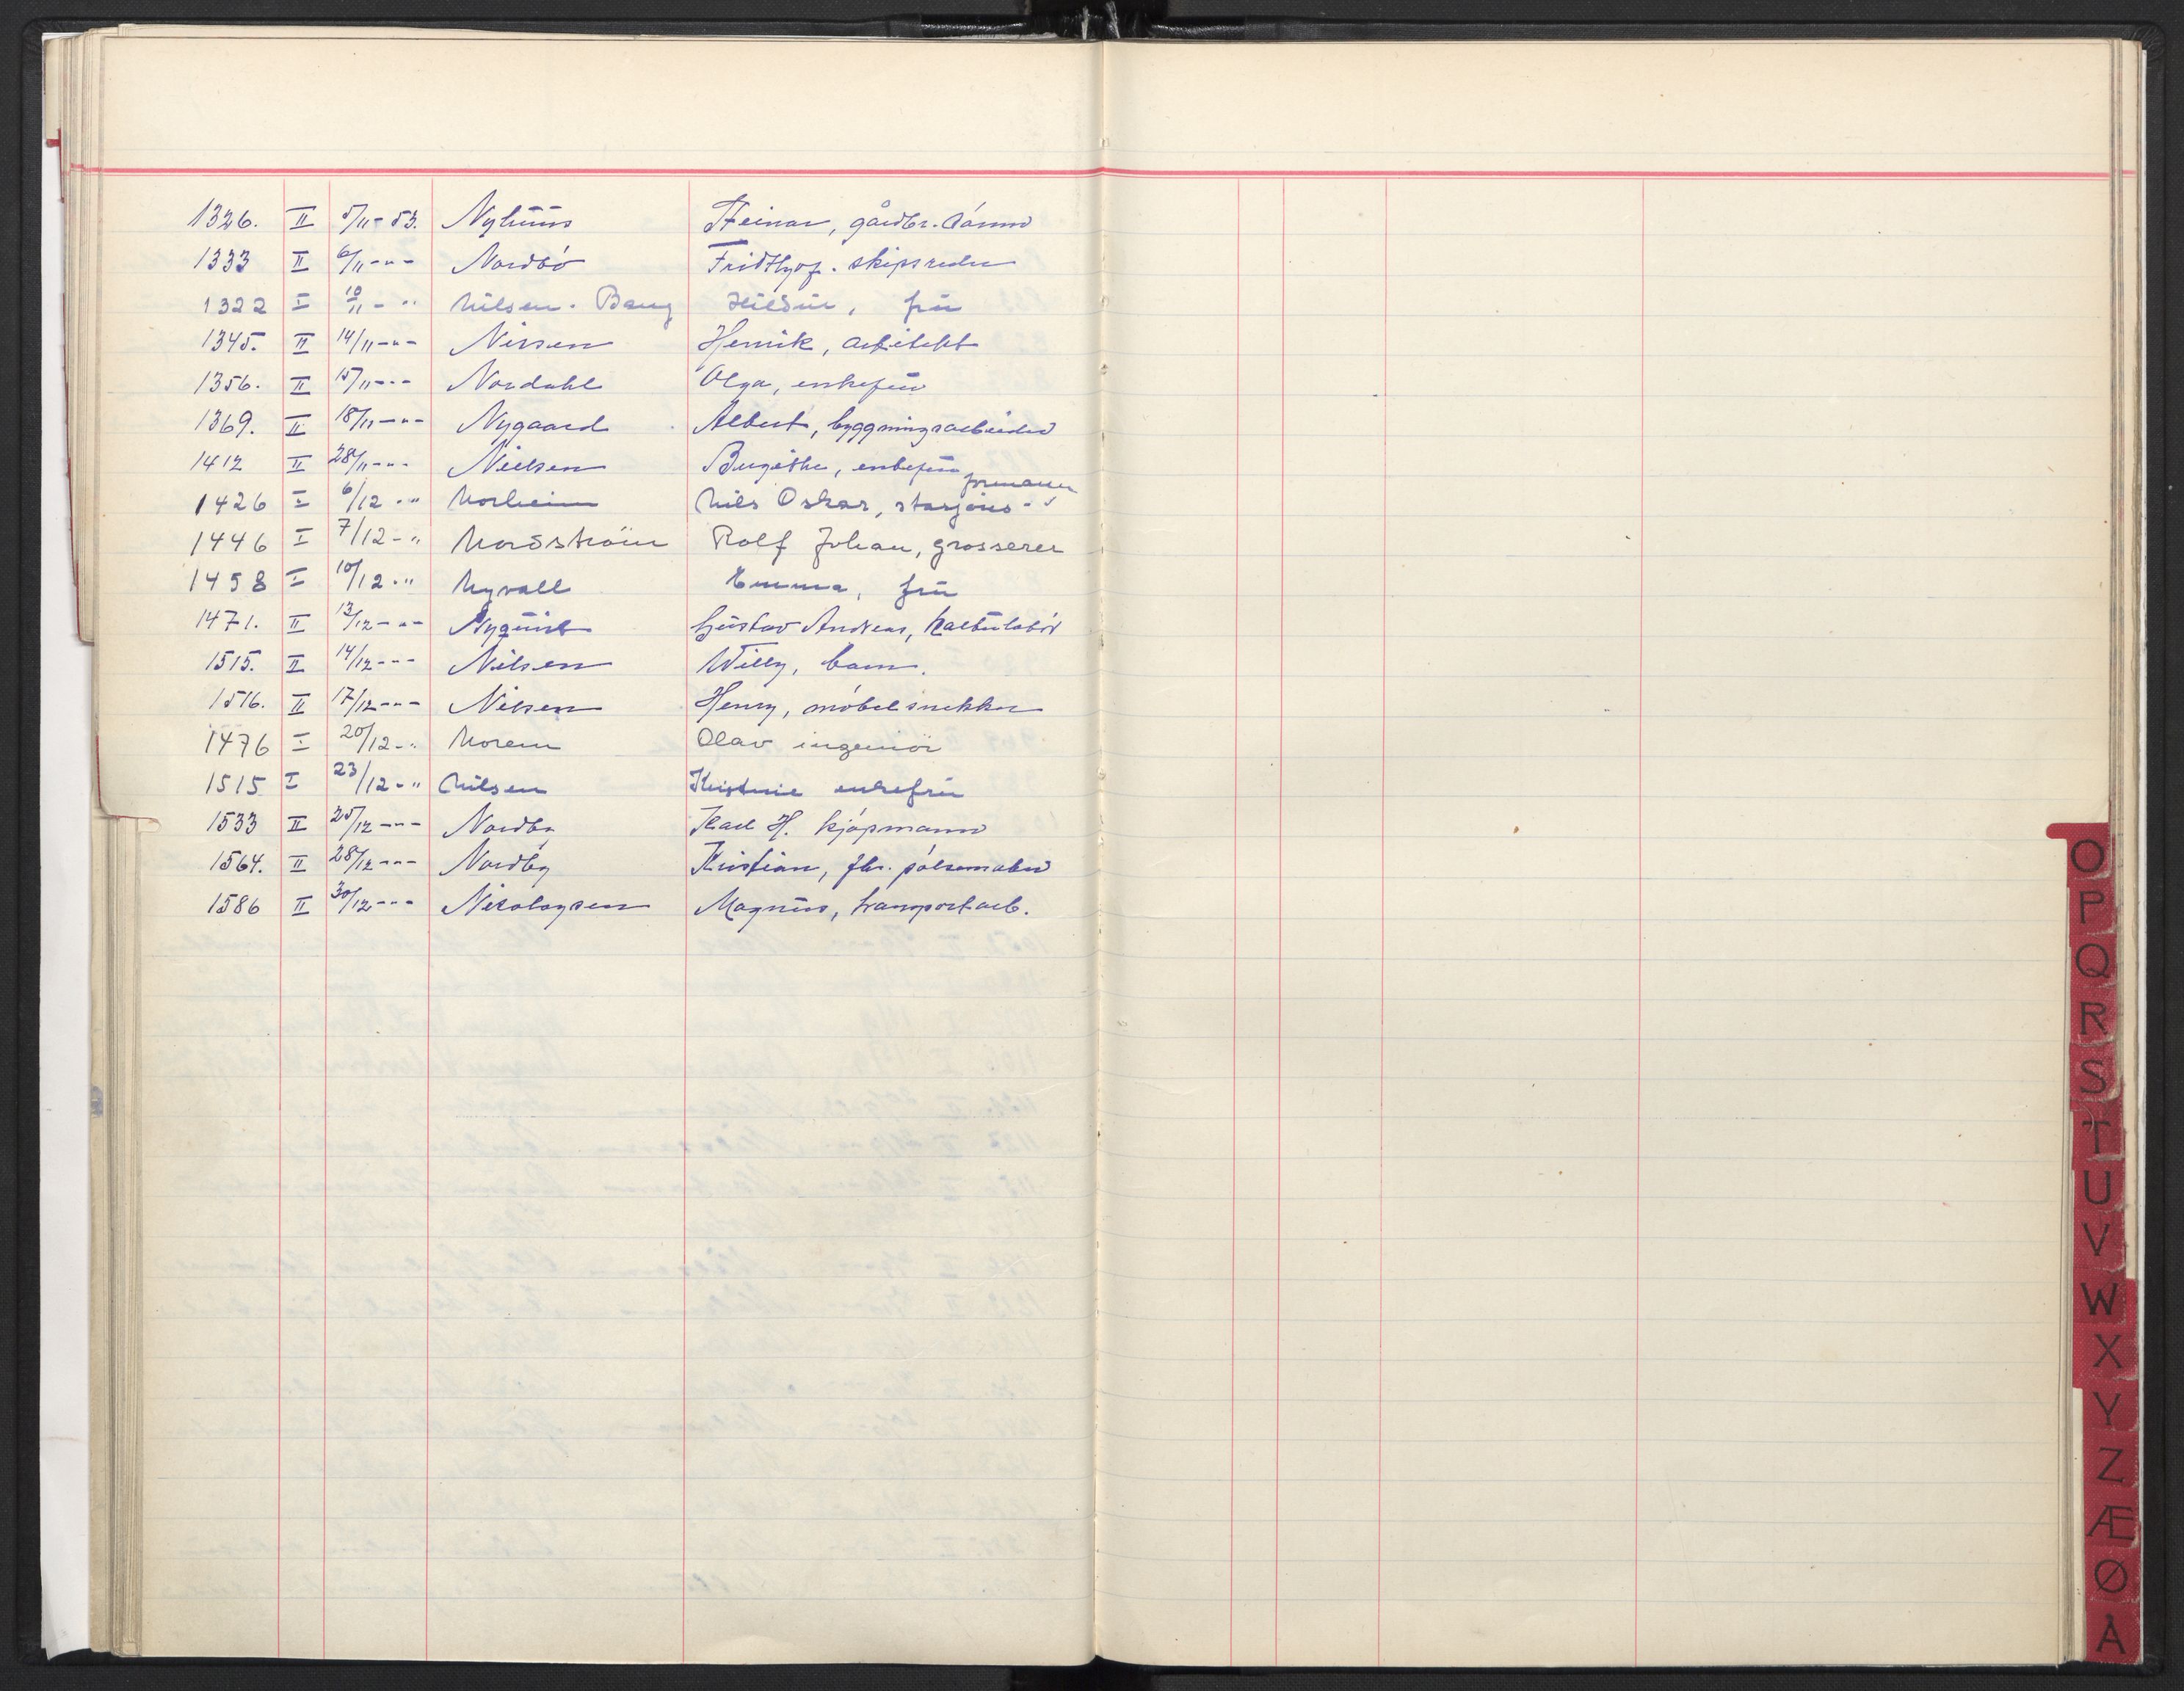 1326. II 5/11-53. Nyhuus Steinar, gårdbr.
1333 II 6/11-"- Nordbö Fridthjof. skipsreder
1322 I 10/11 - " Nilsen. Baug frü
1345. II 14/11-"- Nissen Henrik, arkitekt
1356. II 15/11-"- Nordahl Olga, enkefrü
1369. II 18/11-"- Nygaard Albert, byggningsarbeider
1412 II 28/11-"- Nielsen Birgithe, enkefrü
formann
1426 I 6/12 - " Norheim Nils Oskar, stasjons-
1446 I 7/12 - " Nordström Rolf Johan, grosserer
1458 I 10/12 - " Nyvall Emma, frü
1471. II 13/12-"- Nyquist Gustav Andreas, kalkulatör
1515. II 14/12-"- Nilsen Willy, barn.
1516. II 17/12-"- Nilsen Henry, möbelsnekker
1476 I 20/12 - " Norem Olav ingeniör
1515 I 23/12 - " Nilsen Kristine enkefrü
1533 II 25/12-"- Nordby Karl H. kjöpmann
1564. II 28/12-"- Nordby Kristian, fhr. pölsemaker
1586 II 30/12-"- Nicolaysen Magnus, transportarb.
O
P
Q
R
S
T
U
V
W
X
Y
Z
Æ
Ø
Å